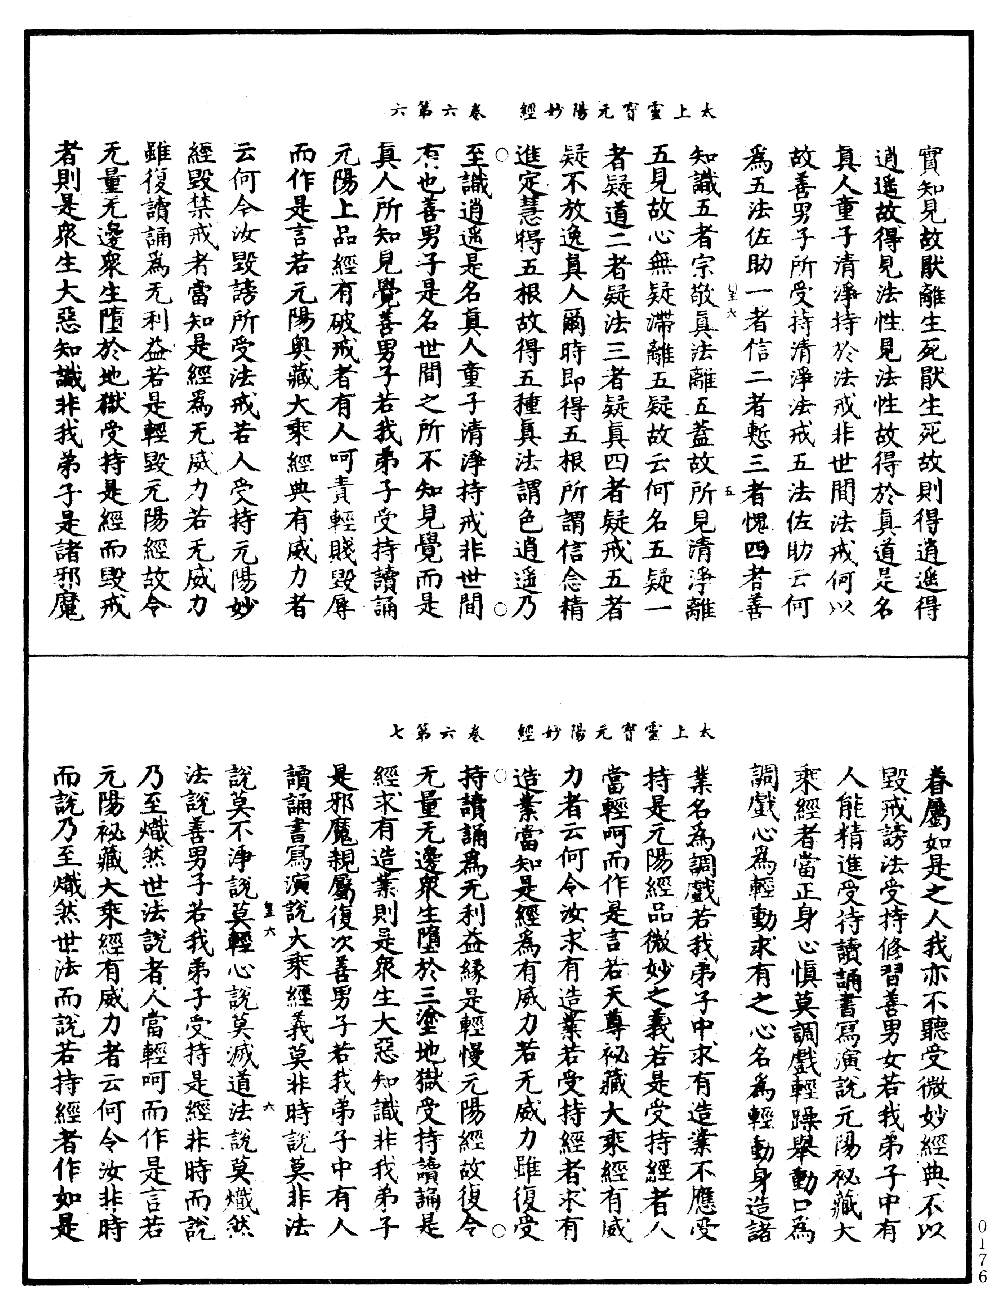 太上靈寶元陽妙經　卷六第六
實知見故猒離生死猒生死故則得逍遙得
逍遙故得見法性見法性故得於真道是名
真人童子清淨持於法戒非世間法戒何以
故善男子所受持清淨法戒五法佐助云何
為五法佐助一者信二者慙三者愧四者善
皇六　五
知識五者宗敬真法離五蓋故所見清淨離
五見故心無疑滯離五疑故云何名五疑一
者疑道二者疑法三者疑真四者疑戒五者
疑不放逸真人爾時即得五根所謂信念精
進定慧得五根故得五種真法謂色逍遙乃
至識逍遙是名真人童子清淨持戒非世間
有也善男子是名世間之所不知見覺而是
真人所知見覺善男子若我弟子受持讀誦
元陽上品經有破戒者有人呵責輕賤毀辱
而作是言若元陽奧藏大乘經典有威力者
云何令汝毀謗所受法戒若人受持元陽妙
經毀禁戒者當知是經為无威力若无威力
雖復讀誦為无利益若是輕毀元陽經故令
无量无邊衆生墮於地獄受持是經而毀戒
者則是衆生大惡知識非我弟子是諸邪魔
太上靈寶元陽妙經　卷六第七
眷屬如是之人我亦不聽受微妙經典不以
毀戒謗法受持修習善男女若我弟子中有
人能精進受待讀誦書寫演說元陽祕藏大
乘經者當正身心慎莫調戲輕躁舉動口為
調戲心為輕動求有之心名為輕動身造諸
業名為調戲若我弟子中求有造業不應受
持是元陽經品微妙之義若是受持經者人
當輕呵而作是言若天尊祕藏大乘經有威
力者云何令汝求有造業若受持經者求有
造業當知是經為有威力若无威力雖復受
持讀誦為无利益緣是輕慢元陽經故復令
无量无邊衆生墮於三塗地獄受持讀誦是
經求有造業則是衆生大惡知識非我弟子
是邪魔親屬復次善男子若我弟子中有人
讀誦書寫演說大乘經義莫非時說莫非法
皇六　六
說莫不淨說莫輕心說莫滅道法說莫熾然
法說善男子若我弟子受持是經非時而說
乃至熾然世法說者人當輕呵而作是言若
元陽祕藏大乘經有威力者云何令汝非時
而說乃至熾然世法而說若持經者作如是
0176